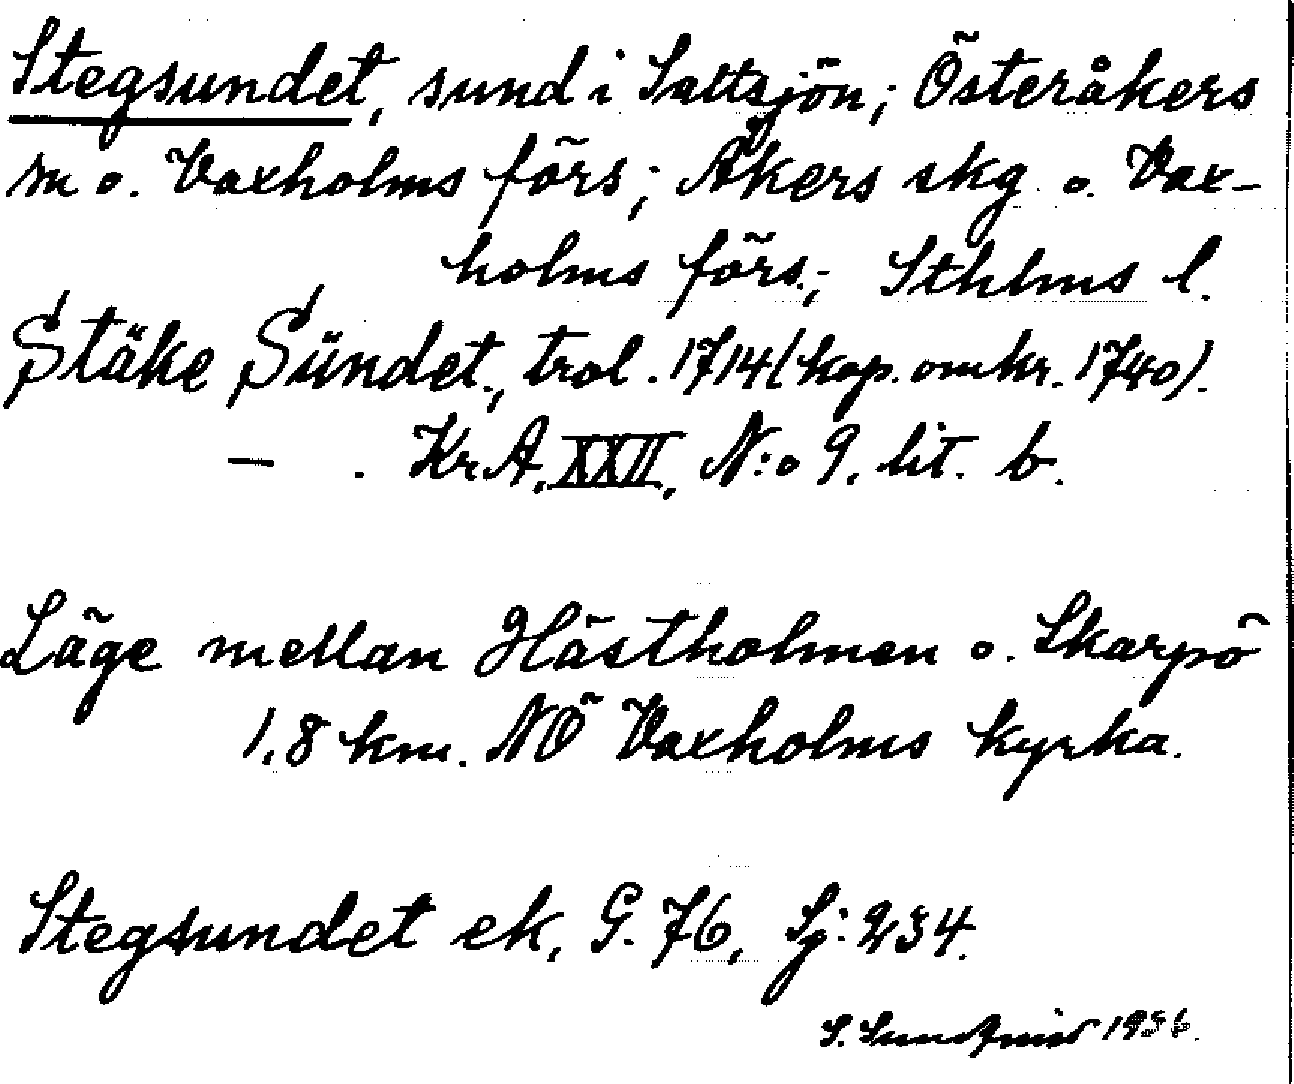 Stegsundet, sund i Saltsjön; Österåkers
sn o. Vaxholms förs; Åkers skg o. Vax-
holms förs.; Sthlms l.
Stäke Sündet., trol. 1714 (kop. omkr. 1740).
— . KrA, XXII, N:o 9. lit. b.
Läge mellan Hästholmen o. Skarpö
1,8 km. NÖ Vaxholms kyrka.
Stegsundet ek, G. 76, Sj: 234.
S. 1936.